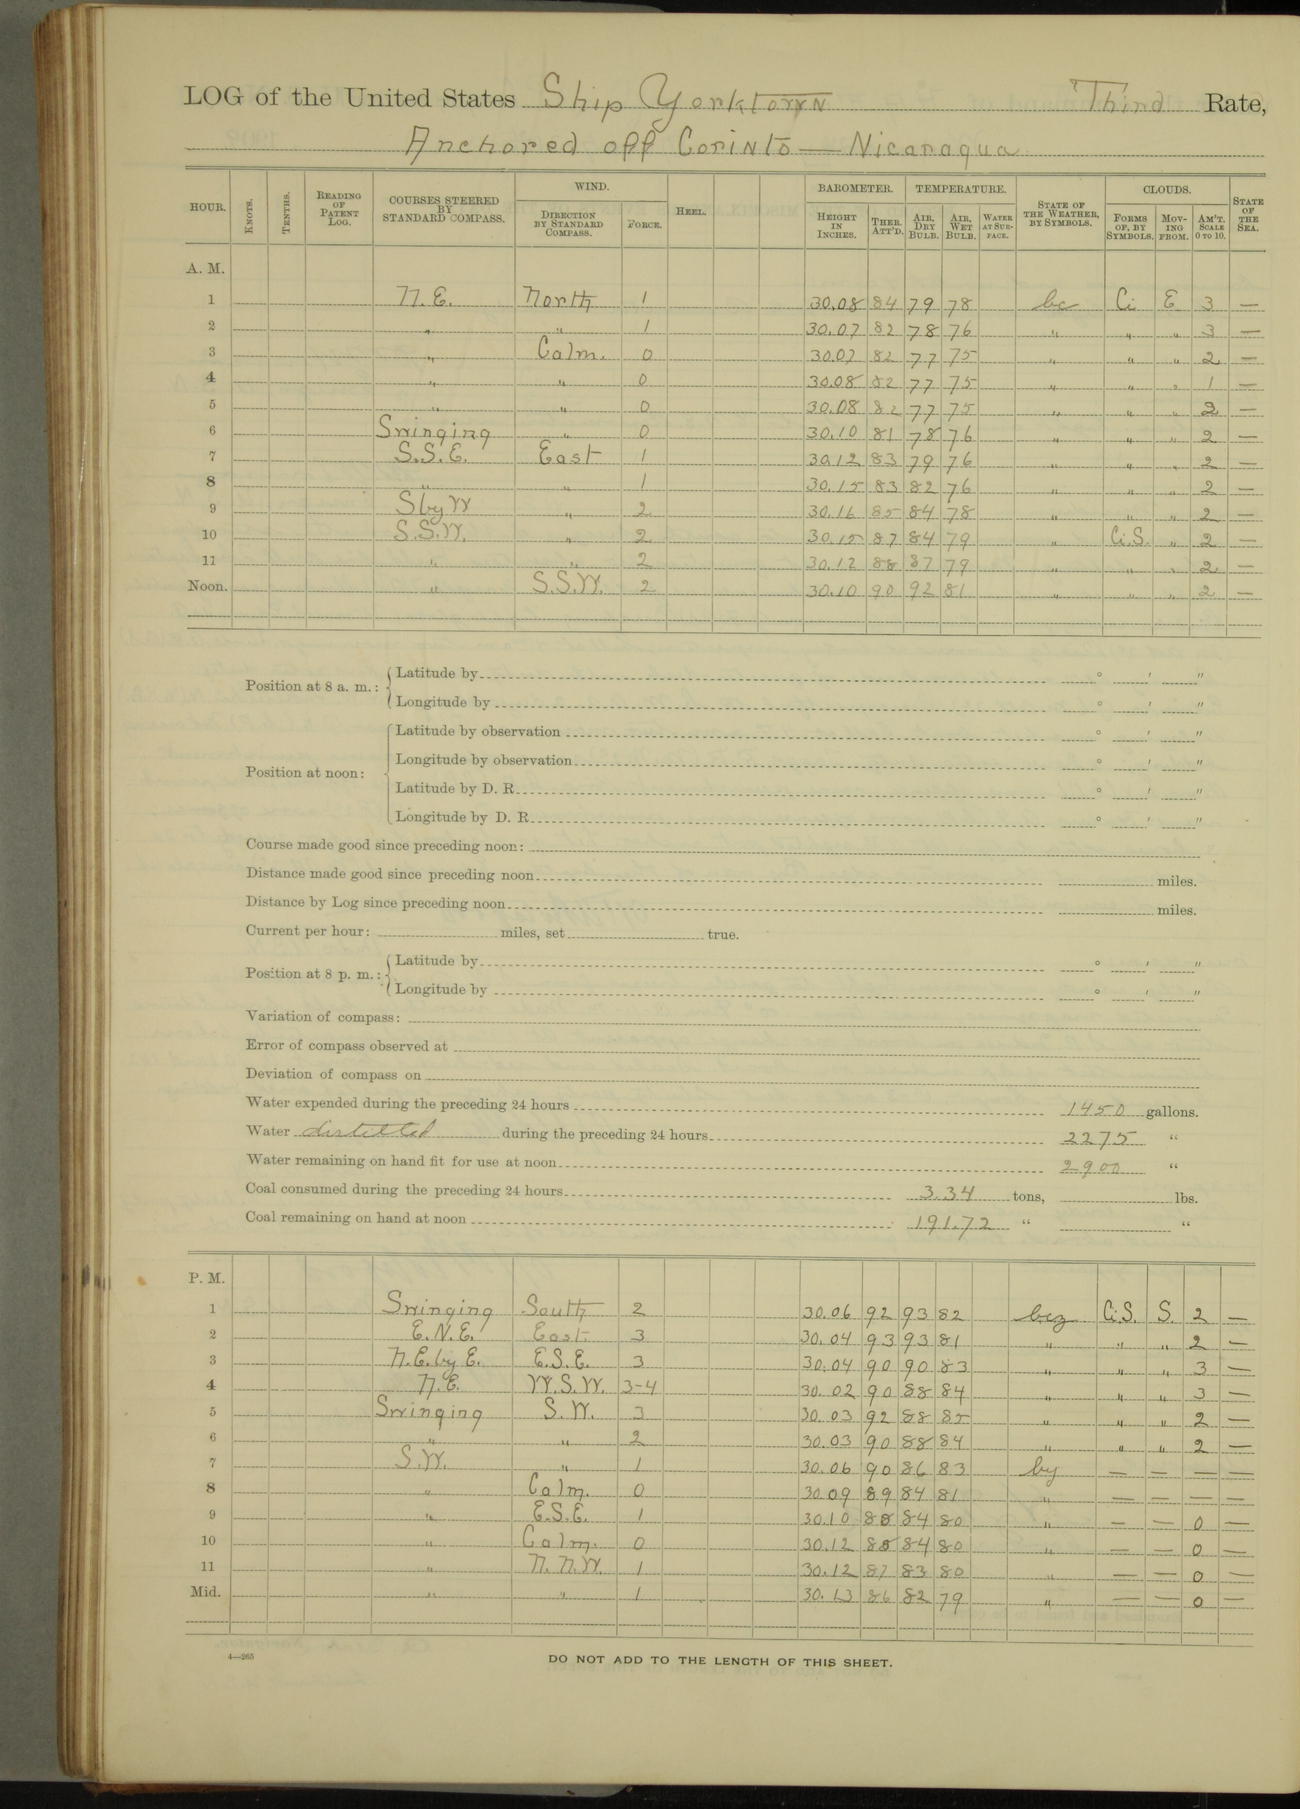 LOG of the United States Ship Yorktown Third Rate,
Anchored off Corinto — Nicaragua
HOUR. KNOTS. TENTHS. READING OF PATENT LOG. COURSES STEERED BY STANDARD COMPASS. WIND. DIRECTION BY STANDARD COMPASS. FORCE. HEEL. BAROMETER. HEIGHT IN INCHES. THER. ATT'D. TEMPERATURE. AIR, DRY BULB. AIR, WET BULB. WATER AT SUR-FACE. STATE OF THE WEATHER, BY SYMBOLS. CLOUDS. FORMS OF, BY SYMBOLS. MOV-ING FROM. AM'T. SCALE 0 TO 10. STATE OF THE SEA.
A. M.
1 N.E. North 1 30.08 84 79 78 bc Ci E 3 —
2 " " 1 30.07 82 78 76 " " " 3 —
3 " Calm. 0 30.07 82 77 75 " " " 2 —
4 " " 0 30.08 82 77 75 " " " 1 —
5 " " 0 30.08 82 77 75 " " " 2 —
6 Swinging " 0 30.10 81 78 76 " " " 2 —
7 S.S.E. East 1 30.12 83 79 76 " " " 2 —
8 " " 1 30.15 83 82 76 " " " 2 —
9 SbyW " 2 30.16 85 84 78 " " " 2 —
10 S.S.W. " 2 30.15 87 84 79 " Ci.S. " 2 —
11 " " 2 30.12 88 87 79 " " " 2 —
Noon. " S.S.W. 2 30.10 90 92 81 " " " 2 —
Position at 8 a. m.: Latitude by ° ′ ″
Longitude by ° ′ ″
Position at noon: Latitude by observation ° ′ ″
Longitude by observation ° ′ ″
Latitude by D. R. ° ′ ″
Longitude by D. R. ° ′ ″
Course made good since preceding noon:
Distance made good since preceding noon miles.
Distance by Log since preceding noon miles.
Current per hour: miles, set true.
Position at 8 p. m.: Latitude by ° ′ ″
Longitude by ° ′ ″
Variation of compass:
Error of compass observed at
Deviation of compass on
Water expended during the preceding 24 hours 1450 gallons.
Water distilled during the preceding 24 hours 2275 "
Water remaining on hand fit for use at noon 2900 "
Coal consumed during the preceding 24 hours 3.34 tons, lbs.
Coal remaining on hand at noon 191.72 " "
P. M.
1 Swinging South 2 30.06 92 93 82 bcz Ci.S. S. 2 —
2 E.N.E. East 3 30.04 93 93 81 " " " 2 —
3 N.E.by E. E.S.E. 3 30.04 90 90 83 " " " 3 —
4 N.E. W.S.W. 3-4 30.02 90 88 84 " " " 3 —
5 Swinging S.W. 3 30.03 92 88 85 " " " 2 —
6 " " 2 30.03 90 88 84 " " " 2 —
7 S.W. " 1 30.06 90 86 83 by — — — —
8 " Calm. 0 30.09 89 84 81 " — — — —
9 " E.S.E. 1 30.10 88 84 80 " — — 0 —
10 " Calm. 0 30.12 88 84 80 " — — 0 —
11 " N.N.W. 1 30.12 87 83 80 " — — 0 —
Mid. " " 1 30.13 86 82 79 " — — 0 —
4—265
DO NOT ADD TO THE LENGTH OF THIS SHEET.